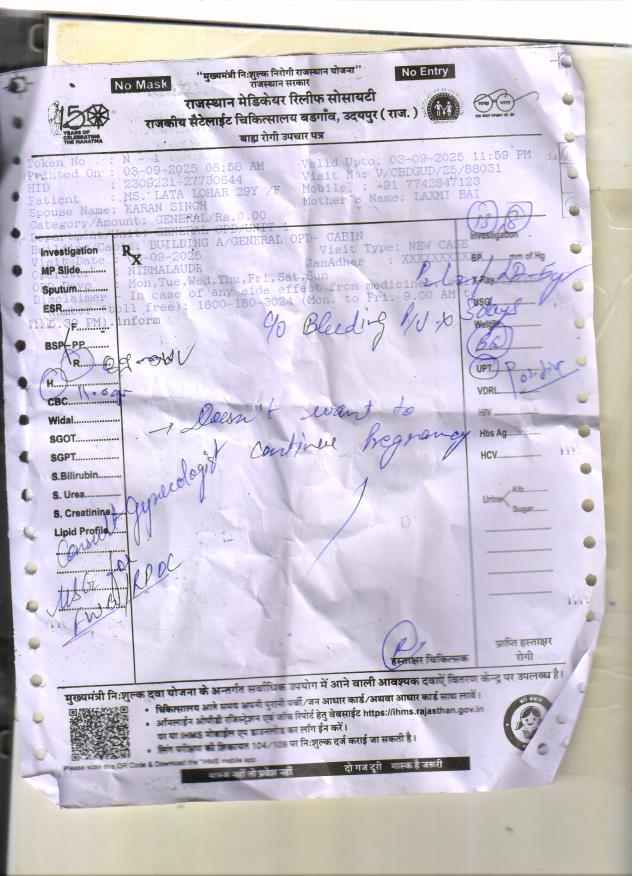 "मुख्यमंत्री नि:शुल्क निरोगी राजस्थान योजना"
No Mask
राजस्थान सरकार
No Entry
राजस्थान मेडिकेयर रिलीफ सोसायटी
राजकीय सैटेलाईट चिकित्सालय बडगाँव, उदयपुर ( राज. )
बाह्य रोगी उपचार पत्र
150
YEARS OF
CELEBRATING
THE MAHATMA
Token No : N
Valid Upto: 03-09-2025 11:59 PM
Printed On : 03-09-2025 08:58 AM
Visit No: V/CBDGUD/25/88031
HID : 2309221-27730644
Mobile : +91 7742847123
Patient : MS. LATA LOHAR 29Y /F
Mother's Name: LAXMI BAI
Spouse Name: KARAN SINGH
Category/Amount: GENERAL/Rs.0.00
GENERAL OPD/UNIT-1
BUILDING A/GENERAL OPD- CABIN
Visit Type: NEW CASE
-09-2025
JanAdhar : XXXXXXX
NIRMALAUDR
Mon,Tue,Wed,Thu,Fri,Sat,Sun
Disclaimer : In case of any side effect from medicine
toll free): 1800-180-3024 (Mon. to Fri. 9.00 AM t
PM) inform
Investigation
Rx
MP Slide
Sputum
ESR
F
BSP PP
R
H
11.0
CBC
Widal
SGOT
SGPT
S.Bilirubin
S. Urea
S. Creatinine
Lipid Profile
Investigation
BP mm of Hg
X-Ray
USG
Weight
BG
UPT Positive
VDRL
HIV
Hbs Ag
HCV
Urine Alb
Sugar
C/o Bleeding P/V x 5days
→ Doesn't want to
continue Pregnancy
Consult Gynecologist
USG for
हस्ताक्षर चिकित्सक
प्राप्ति हस्ताक्षर
रोगी
मुख्यमंत्री नि:शुल्क दवा योजना के अन्तर्गत सर्वाधिक उपयोग में आने वाली आवश्यक दवाऐं वितरण केन्द्र पर उपलब्ध है।
• चिकित्सालय आते समय अपनी पुरानी पर्ची/जन आधार कार्ड/अथवा आधार कार्ड साथ लावें।
• ऑनलाईन ओपीडी रजिस्ट्रेशन एवं जाँच रिपोर्ट हेतु वेबसाईट https://ihms.rajasthan.gov.in
पर या IHMS मोबाईल एप डाउनलोड कर लॉग ईन करें।
• लिंग परीक्षण की शिकायत 104/108 पर नि:शुल्क दर्ज कराई जा सकती है।
Please scan this QR Code & Download the "IHMS mobile app
मास्क नहीं तो प्रवेश नहीं
दो गज दूरी मास्क है जरूरी